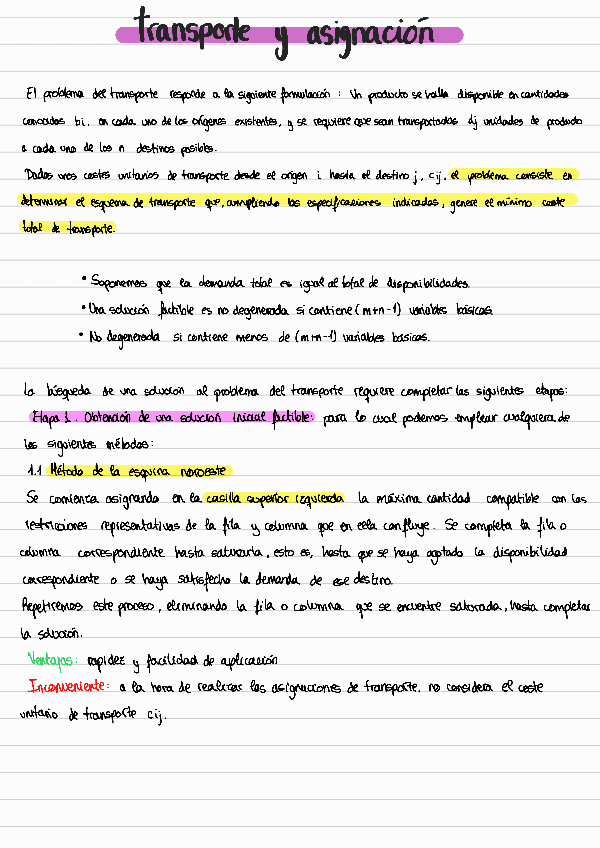 transporte y asignación
El problema del transporte responde a la siguiente formulación: Un producto se halla disponible en cantidades
conocidas bi, en cada uno de los orígenes existentes, y se requiere que sean transportadas dj unidades de producto
a cada uno de los n destinos posibles.
Dados unos costes unitarios de transporte desde el origen i hasta el destino j, cij, el problema consiste en
determinar el esquema de transporte que, cumpliendo las especificaciones indicadas, genere el mínimo coste
total de transporte.
• Suponemos que la demanda total es igual al total de disponibilidades.
• Una solución factible es no degenerada si contiene (m+n-1) variables básicas.
• No degenerada si contiene menos de (m+n-1) variables basicas.
La búsqueda de una solución al problema del transporte requiere completar las siguientes etapas:
Etapa 1. Obtención de una solución inicial factible: para lo cual podemos emplear cualquiera de
los siguientes métodos:
1.1 Método de la esquina noroeste
Se comienza asignando en la casilla superior izquierda la máxima cantidad compatible con las
restricciones representativas de la fila y columna que en ella confluye. Se completa la fila o
columna correspondiente hasta saturarla, esto es, hasta que se haya agotado la disponibilidad
correspondiente o se haya satisfecho la demanda de ese destino.
Repetiremos este proceso, eliminando la fila o columna que se encuentre saturada, hasta completar
la solución.
Ventajas: rapidez y facilidad de aplicación
Inconveniente: a la hora de realizar las asignaciones de transporte, no considera el coste
unitario de transporte cij.